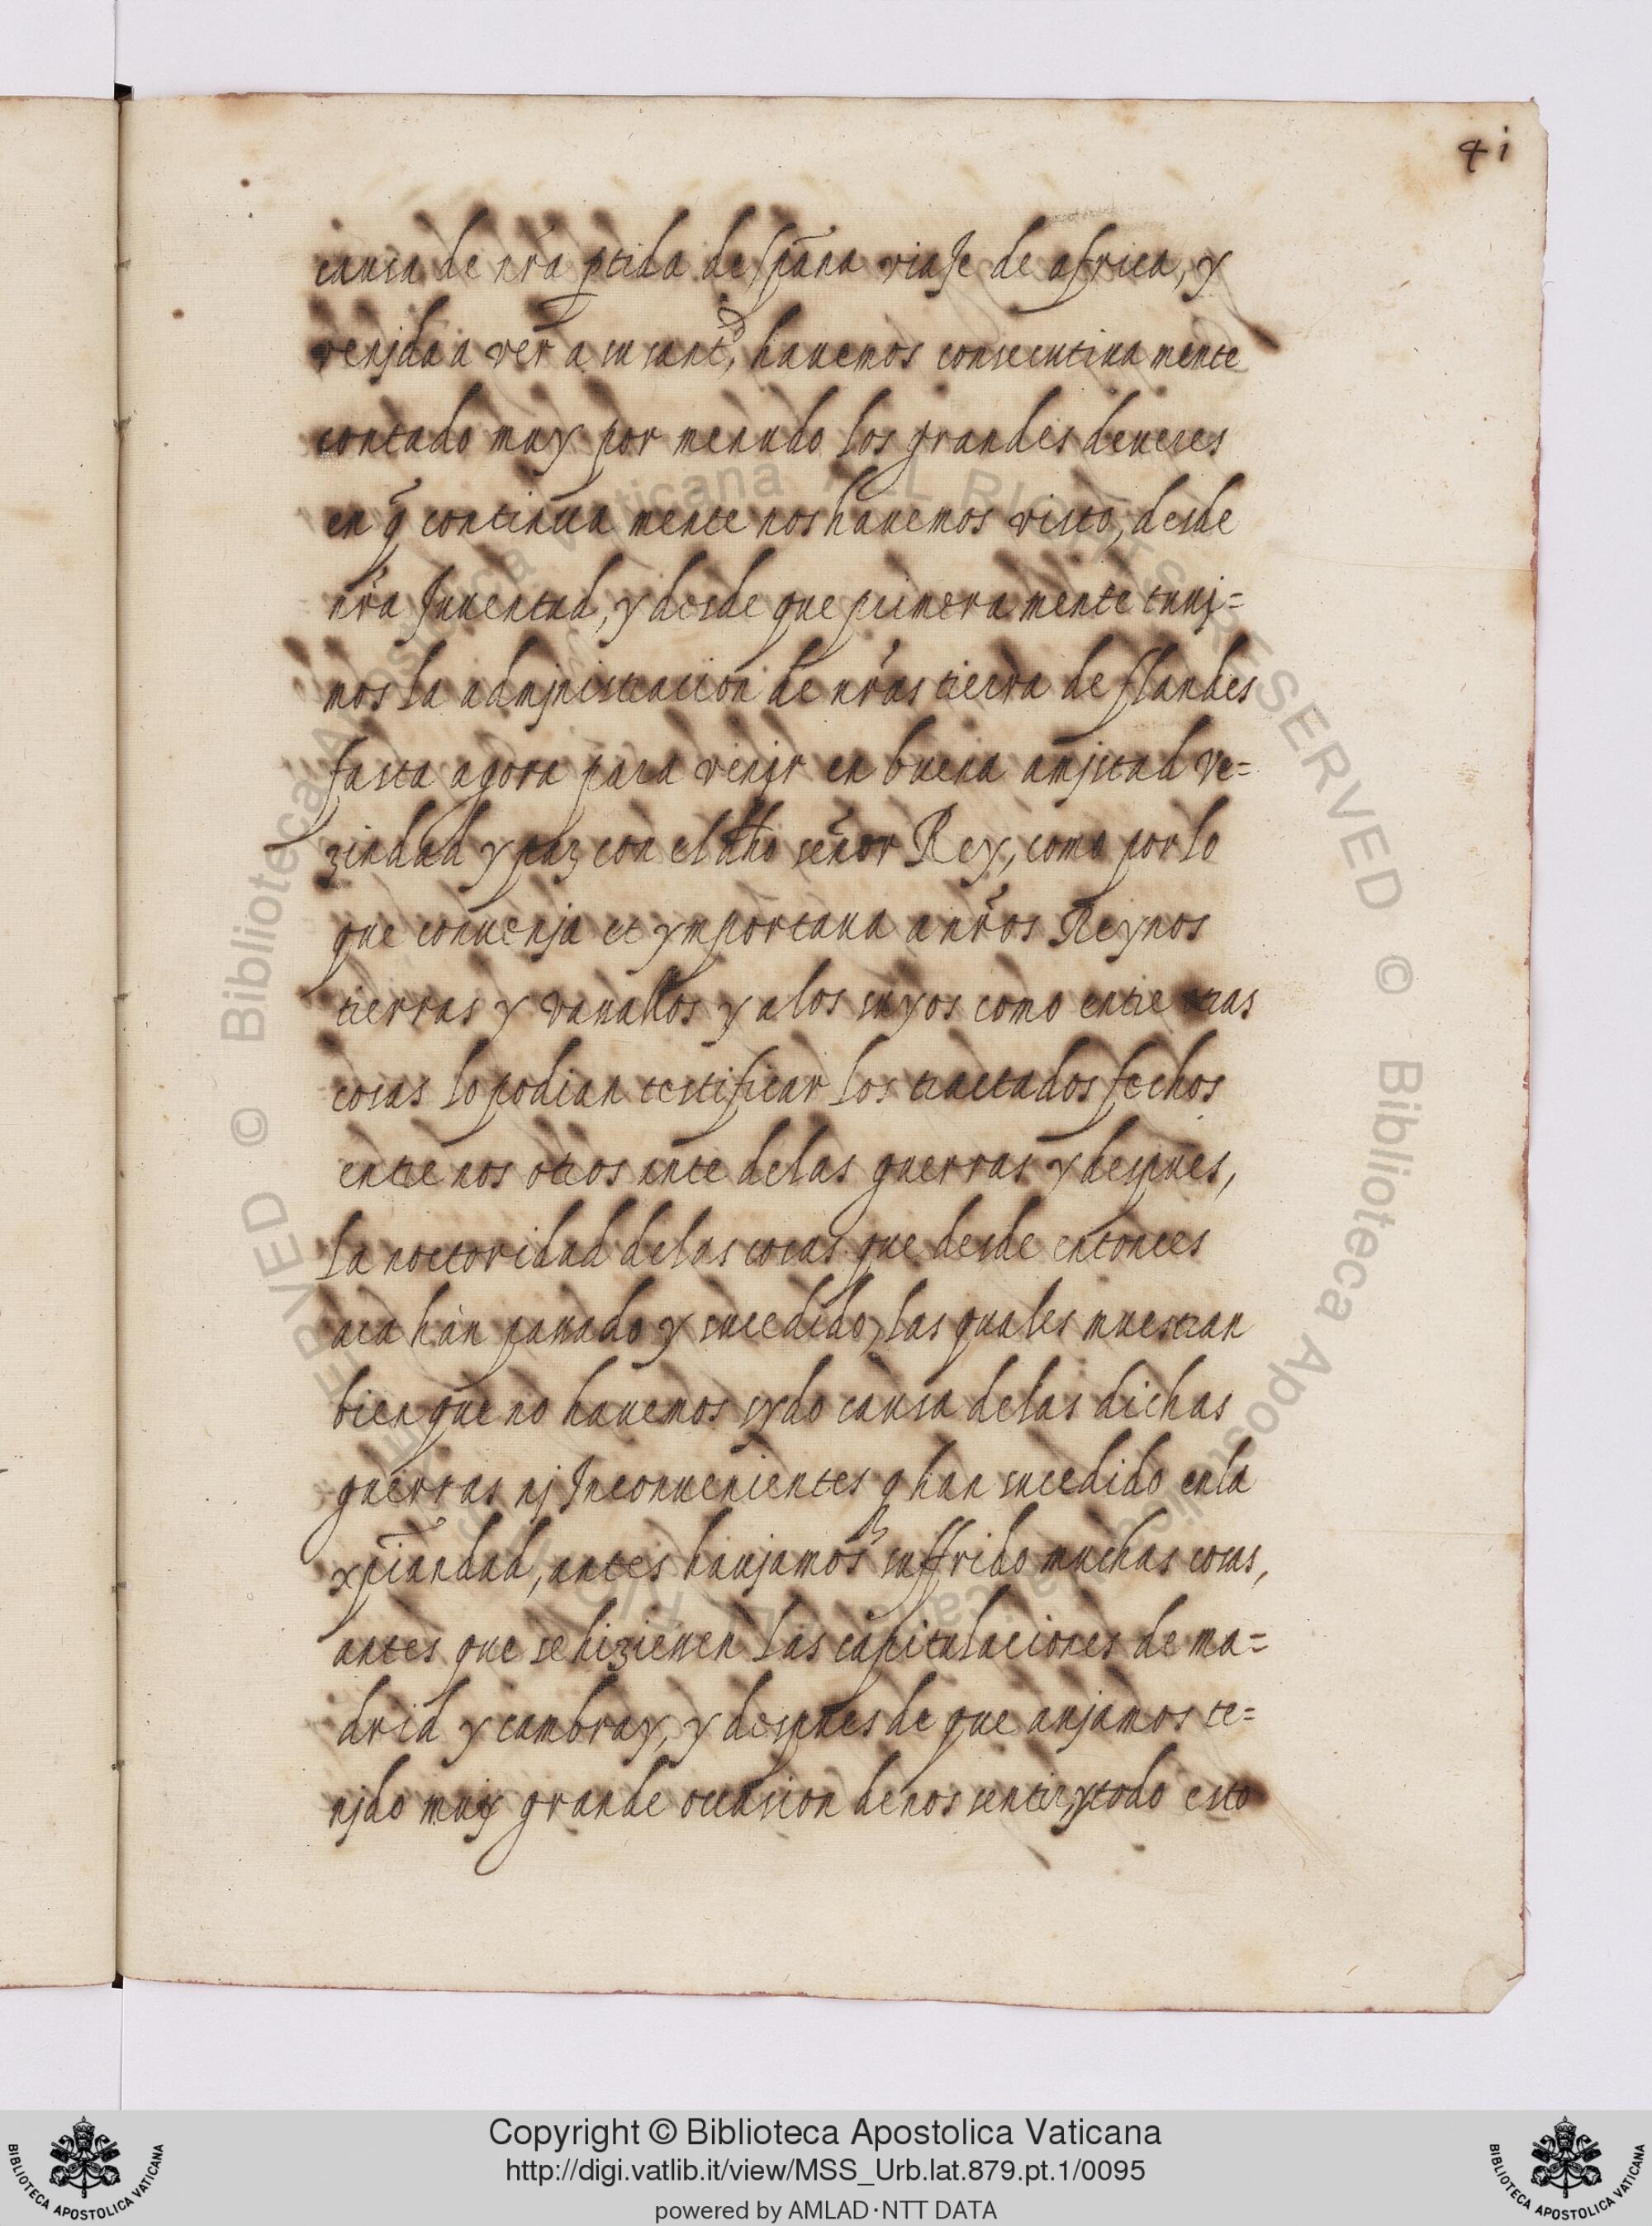 41
causa de nr̃a ptida despãna viaje de africa, y
venjda a ver a su santd, hauemos consecutiua mente
contado muy por menudo los grandes deueres
en q̃ continua mente nos hauemos visto, desde
nr̃a Juuentud, y desde que primera mente tuuj=
mos la admjnistracion de nr̃as tierra de flandes
fasta agora para venjr en buena amjstad ve=
zindad y paz con el dho señor Rey, como por lo
que conuenja et ymportaua a nr̃os Reynos
tierras y vassallos y a los suyos como entre otras
cosas lo podian testificar los tractados fechos
entre nos otros ante de las guerras y despues,
la noctoridad de las cosas que desde entonces
aca han passado y sucedido, las quales muestran
bien que no hauemos sydo causa de las dichas
guerras nj Inconuenientes q han sucedido en la
xp̃iandad, antes haujamos suffrido muchas cosas,
antes que se hiziessen las capitulaciones de ma=
drid y cambray, y despues de que aujamos te=
njdo muy grande occasion de nos sentir, y todo esto
Copyright © Biblioteca Apostolica Vaticana
http://digi.vatlib.it/view/MSS_Urb.lat.879.pt.1/0095
powered by AMLAD·NTT DATA
BIBLIOTECA APOSTOLICA VATICANA
BIBLIOTECA APOSTOLICA VATICANA